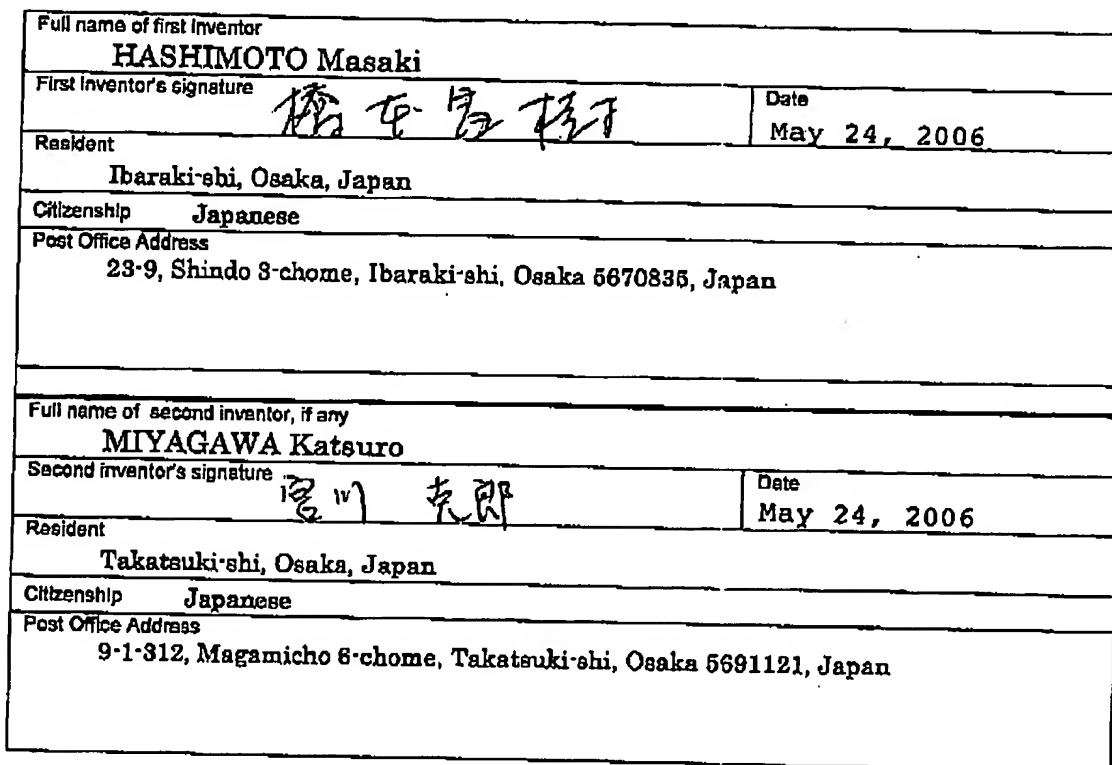 Full name of first inventor
HASHIMOTO Masaki
First inventor's signature 橋本昌樹 Date
May 24, 2006
Resident
Ibaraki-shi, Osaka, Japan
Citizenship Japanese
Post Office Address
23-9, Shindo 3-chome, Ibaraki-shi, Osaka 5670835, Japan
Full name of second inventor, if any
MIYAGAWA Katsuro
Second inventor's signature 宮川 克郎 Date
May 24, 2006
Resident
Takatsuki-shi, Osaka, Japan
Citizenship Japanese
Post Office Address
9-1-312, Magamicho 6-chome, Takatsuki-shi, Osaka 5691121, Japan